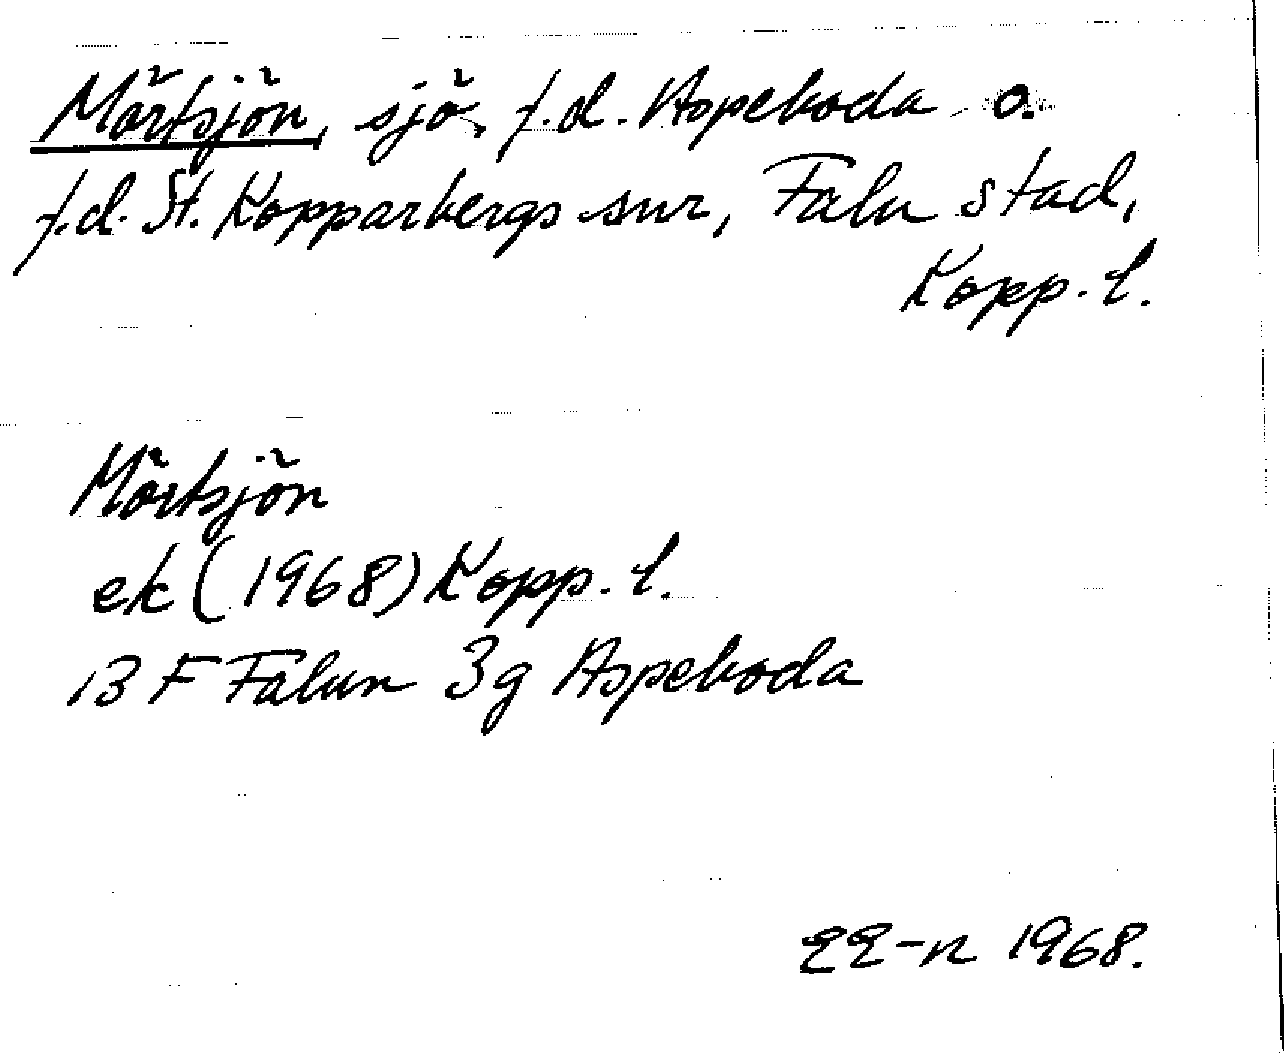 Mörtsjön, sjö, f.d. Aspeboda o.
f.d. St. Kopparbergs snr, Falu stad,
Kopp. l.
Mörtsjön
ek (1968) Kopp. l.
13 F Falun 3g Aspeboda
EE-n 1968.